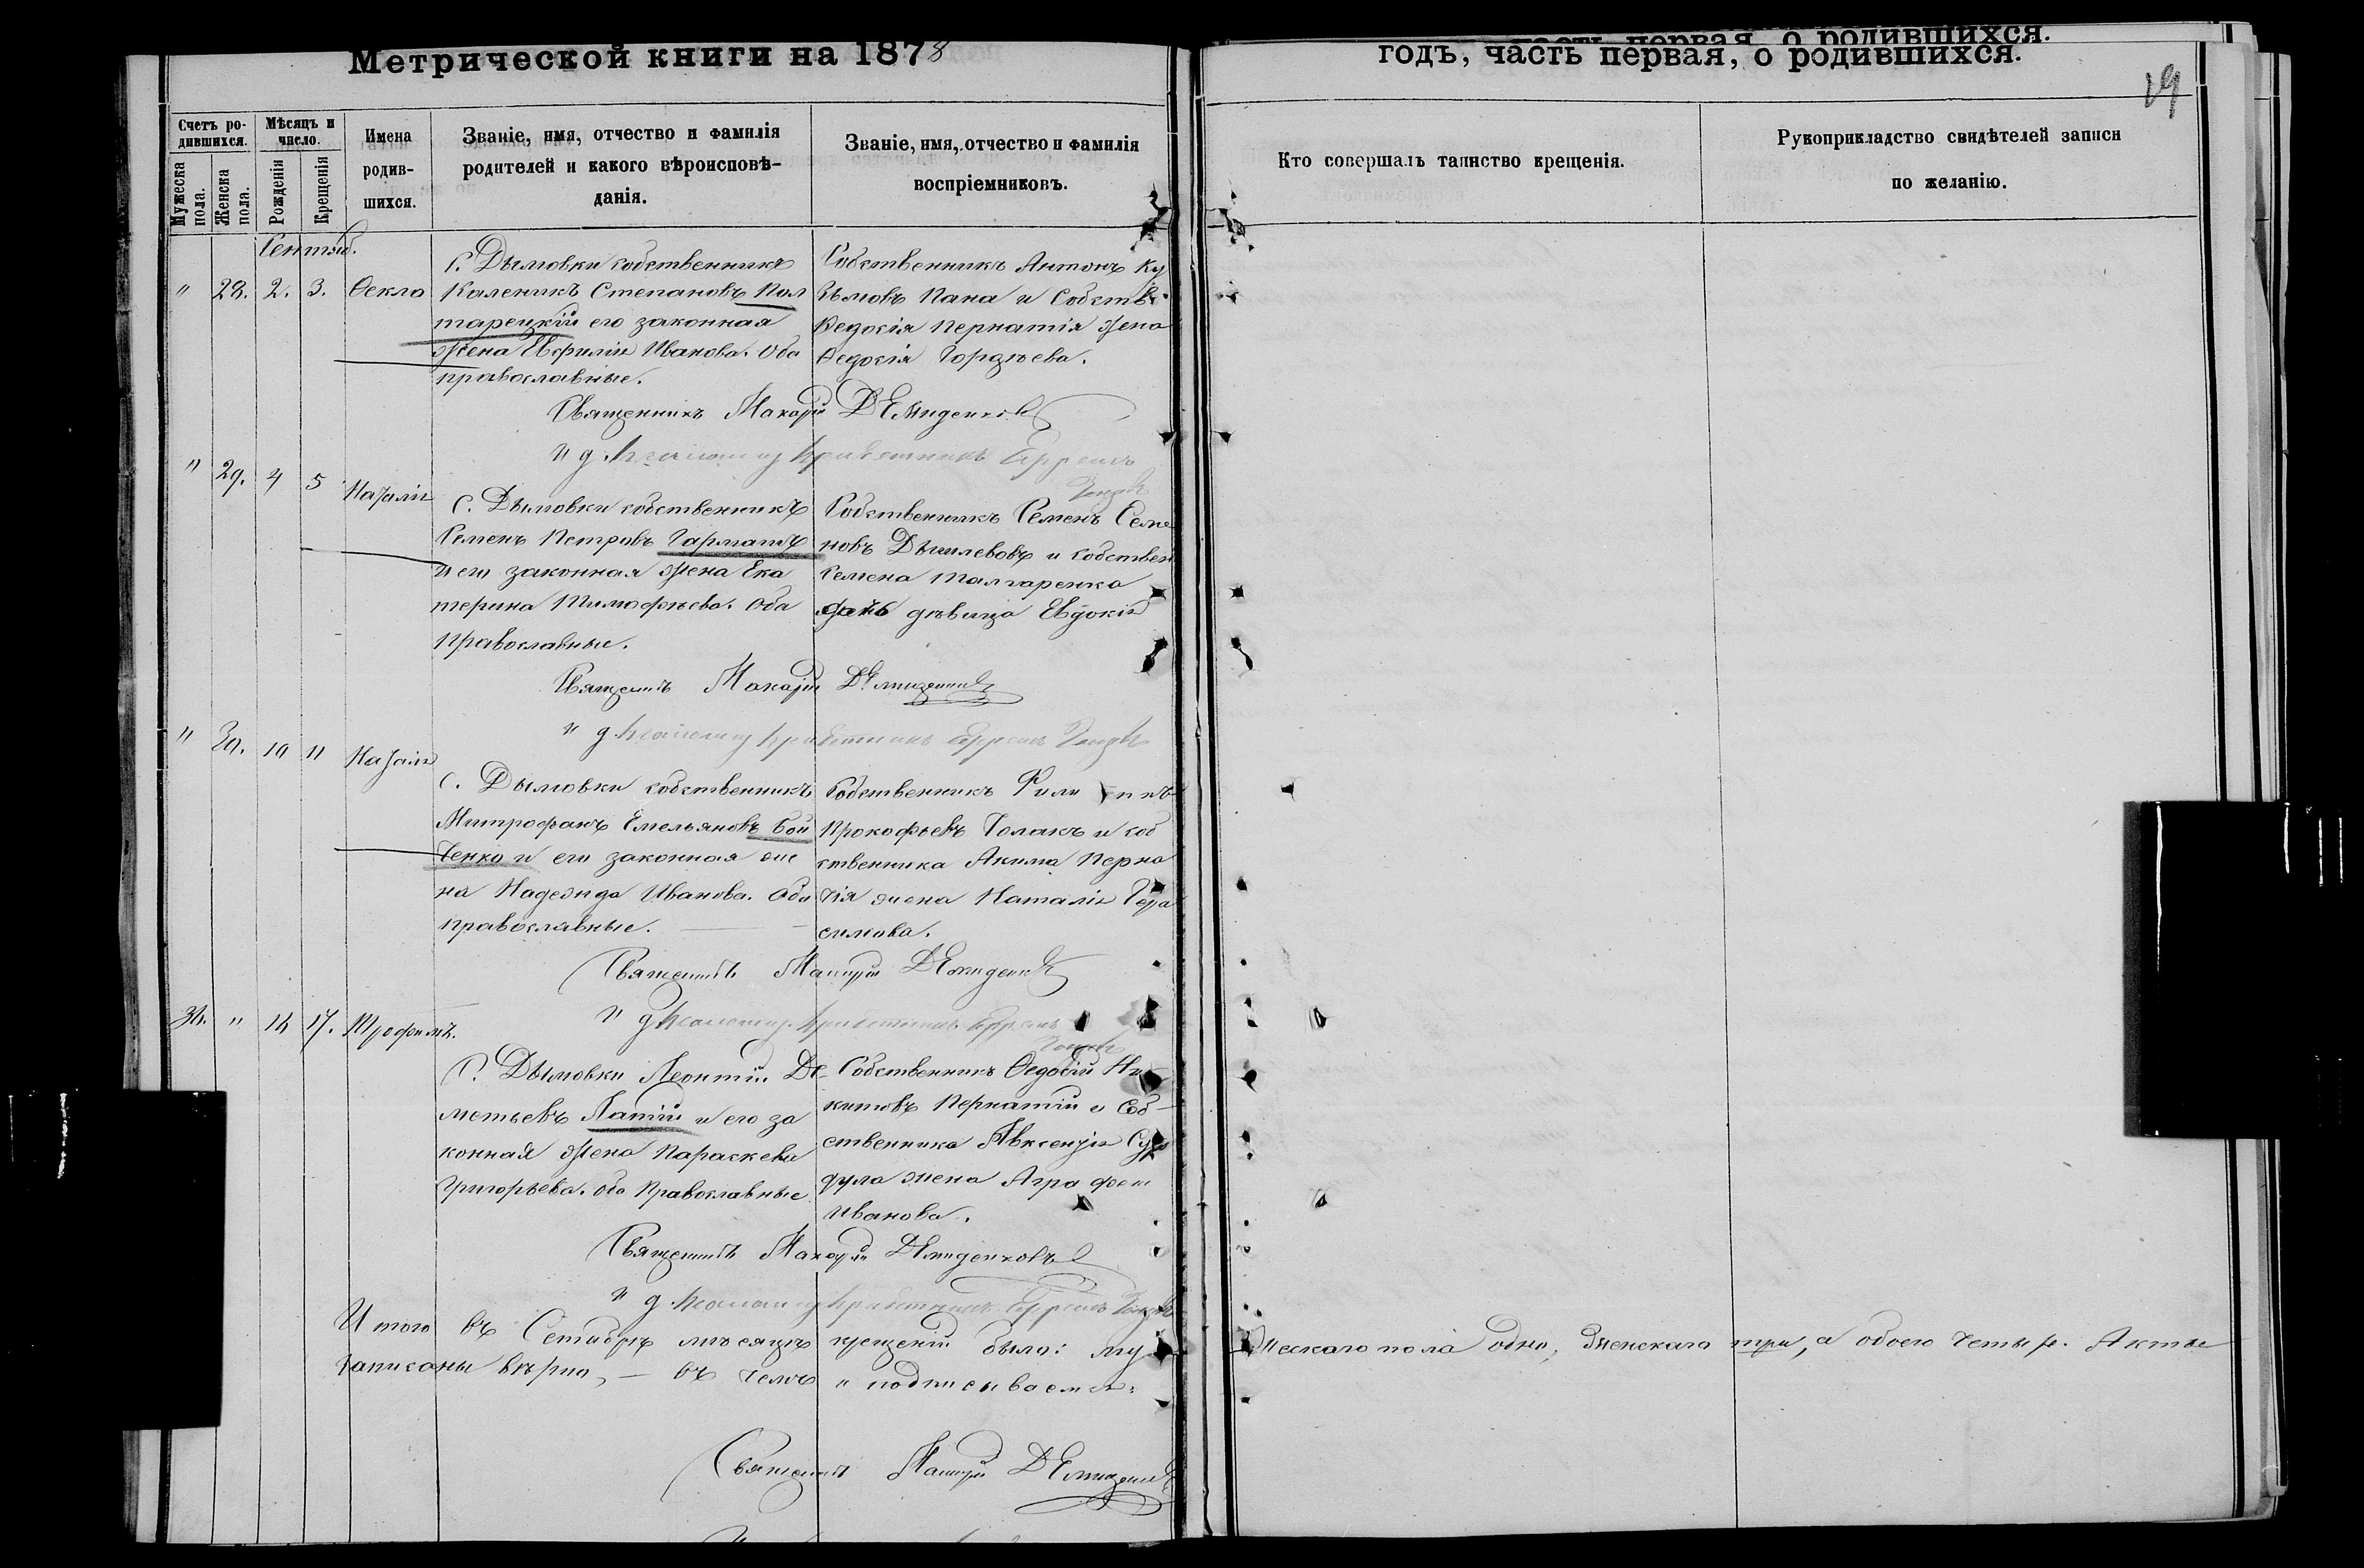 Метрической книги на 1878
годъ, часть первая, о родившихся.
19
Счетъ родившихся.
Мѣсяцъ и число.
Имена родившихся.
Званіе, имя, отчество и фамилія
родителей и какого вѣроисповѣ-
данія.
Званіе, имя, отчество и фамилія
воспріемниковъ.
Кто совершалъ таинство крещенія.
Рукоприкладство свидѣтелей записи
по желанію.
Мужеска пола.
Женска пола.
Рожденія
Крещенія
Сентяб.
" 28. 2. 3. Ѳекла
С. Дымовки собственникъ
Каленикъ Степановъ Пол
тарецкій его законная
жена Евфилія Иванова. Оба
православные.
Собственникъ Антонъ Ку
зьмовъ Пана и Собств.
Ѳедосія Пернатія жена
Ѳедосія Гордѣева.
Священникъ Макарій Демиденковъ
" 29. 4 5 Наталія
С. Дымовки собственникъ
Семенъ Петровъ Гармашъ
и его законная жена Ека
терина Тимофѣева. Оба
православные.
Собственникъ Семенъ Семе
новъ и собствен
Семена
дочь дѣвица Евдокія
Священникъ Макарій Демиденковъ
" 30. 10 11 Наталія
С. Дымовки собственникъ
Митрофанъ Емельяновъ Бой
ченко и его законная же
на Надежда Иванова. Оба
православные.
Собственникъ Филиппъ
Прокофьевъ и соб
ственника Акима Перна
тія жена Наталія Гера
симова.
Священникъ Макарій Демиденковъ
" 17. Трофимъ.
С. Дымовки Леонтій Де
метьевъ Лапій и его за
конная жена Параскева
Григорьева. Оба Православные
Собственникъ Ѳедосій Ни
китовъ Пернатій и Соб-
ственника Авксентія
жена Аграфена
Иванова.
Священникъ Макарій Демиденковъ
Итого въ Сентябрѣ мѣсяцѣ крещеній было: му
жескаго пола одно, женскаго три, а обоего четыр. Акты
записаны вѣрно, — въ чемъ и подписываемся:
Священникъ Макарій Демиденковъ